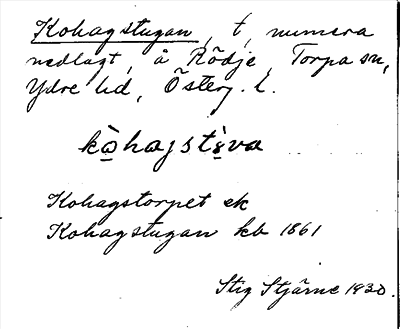 Kohagstugan, t, numera
nedlagt, å Rödje, Torpa sn,
Ydre hd, Österg. l.
kòhajstὲva
Kohagstorpet ek
Kohagstugan kb 1861
Stig Stjärne 1930.